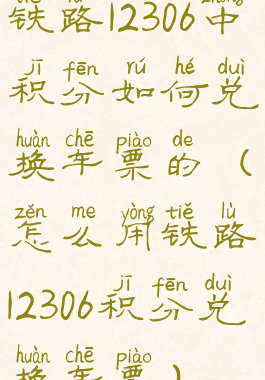 tiě lù zhōng
铁路12306中
jī fēn rú hé duì
积分如何兑
huàn chē piào de
换车票的（
zěn me yòng tiě lù
怎么用铁路
jī fēn duì
12306积分兑
huàn chē piào
换车票）